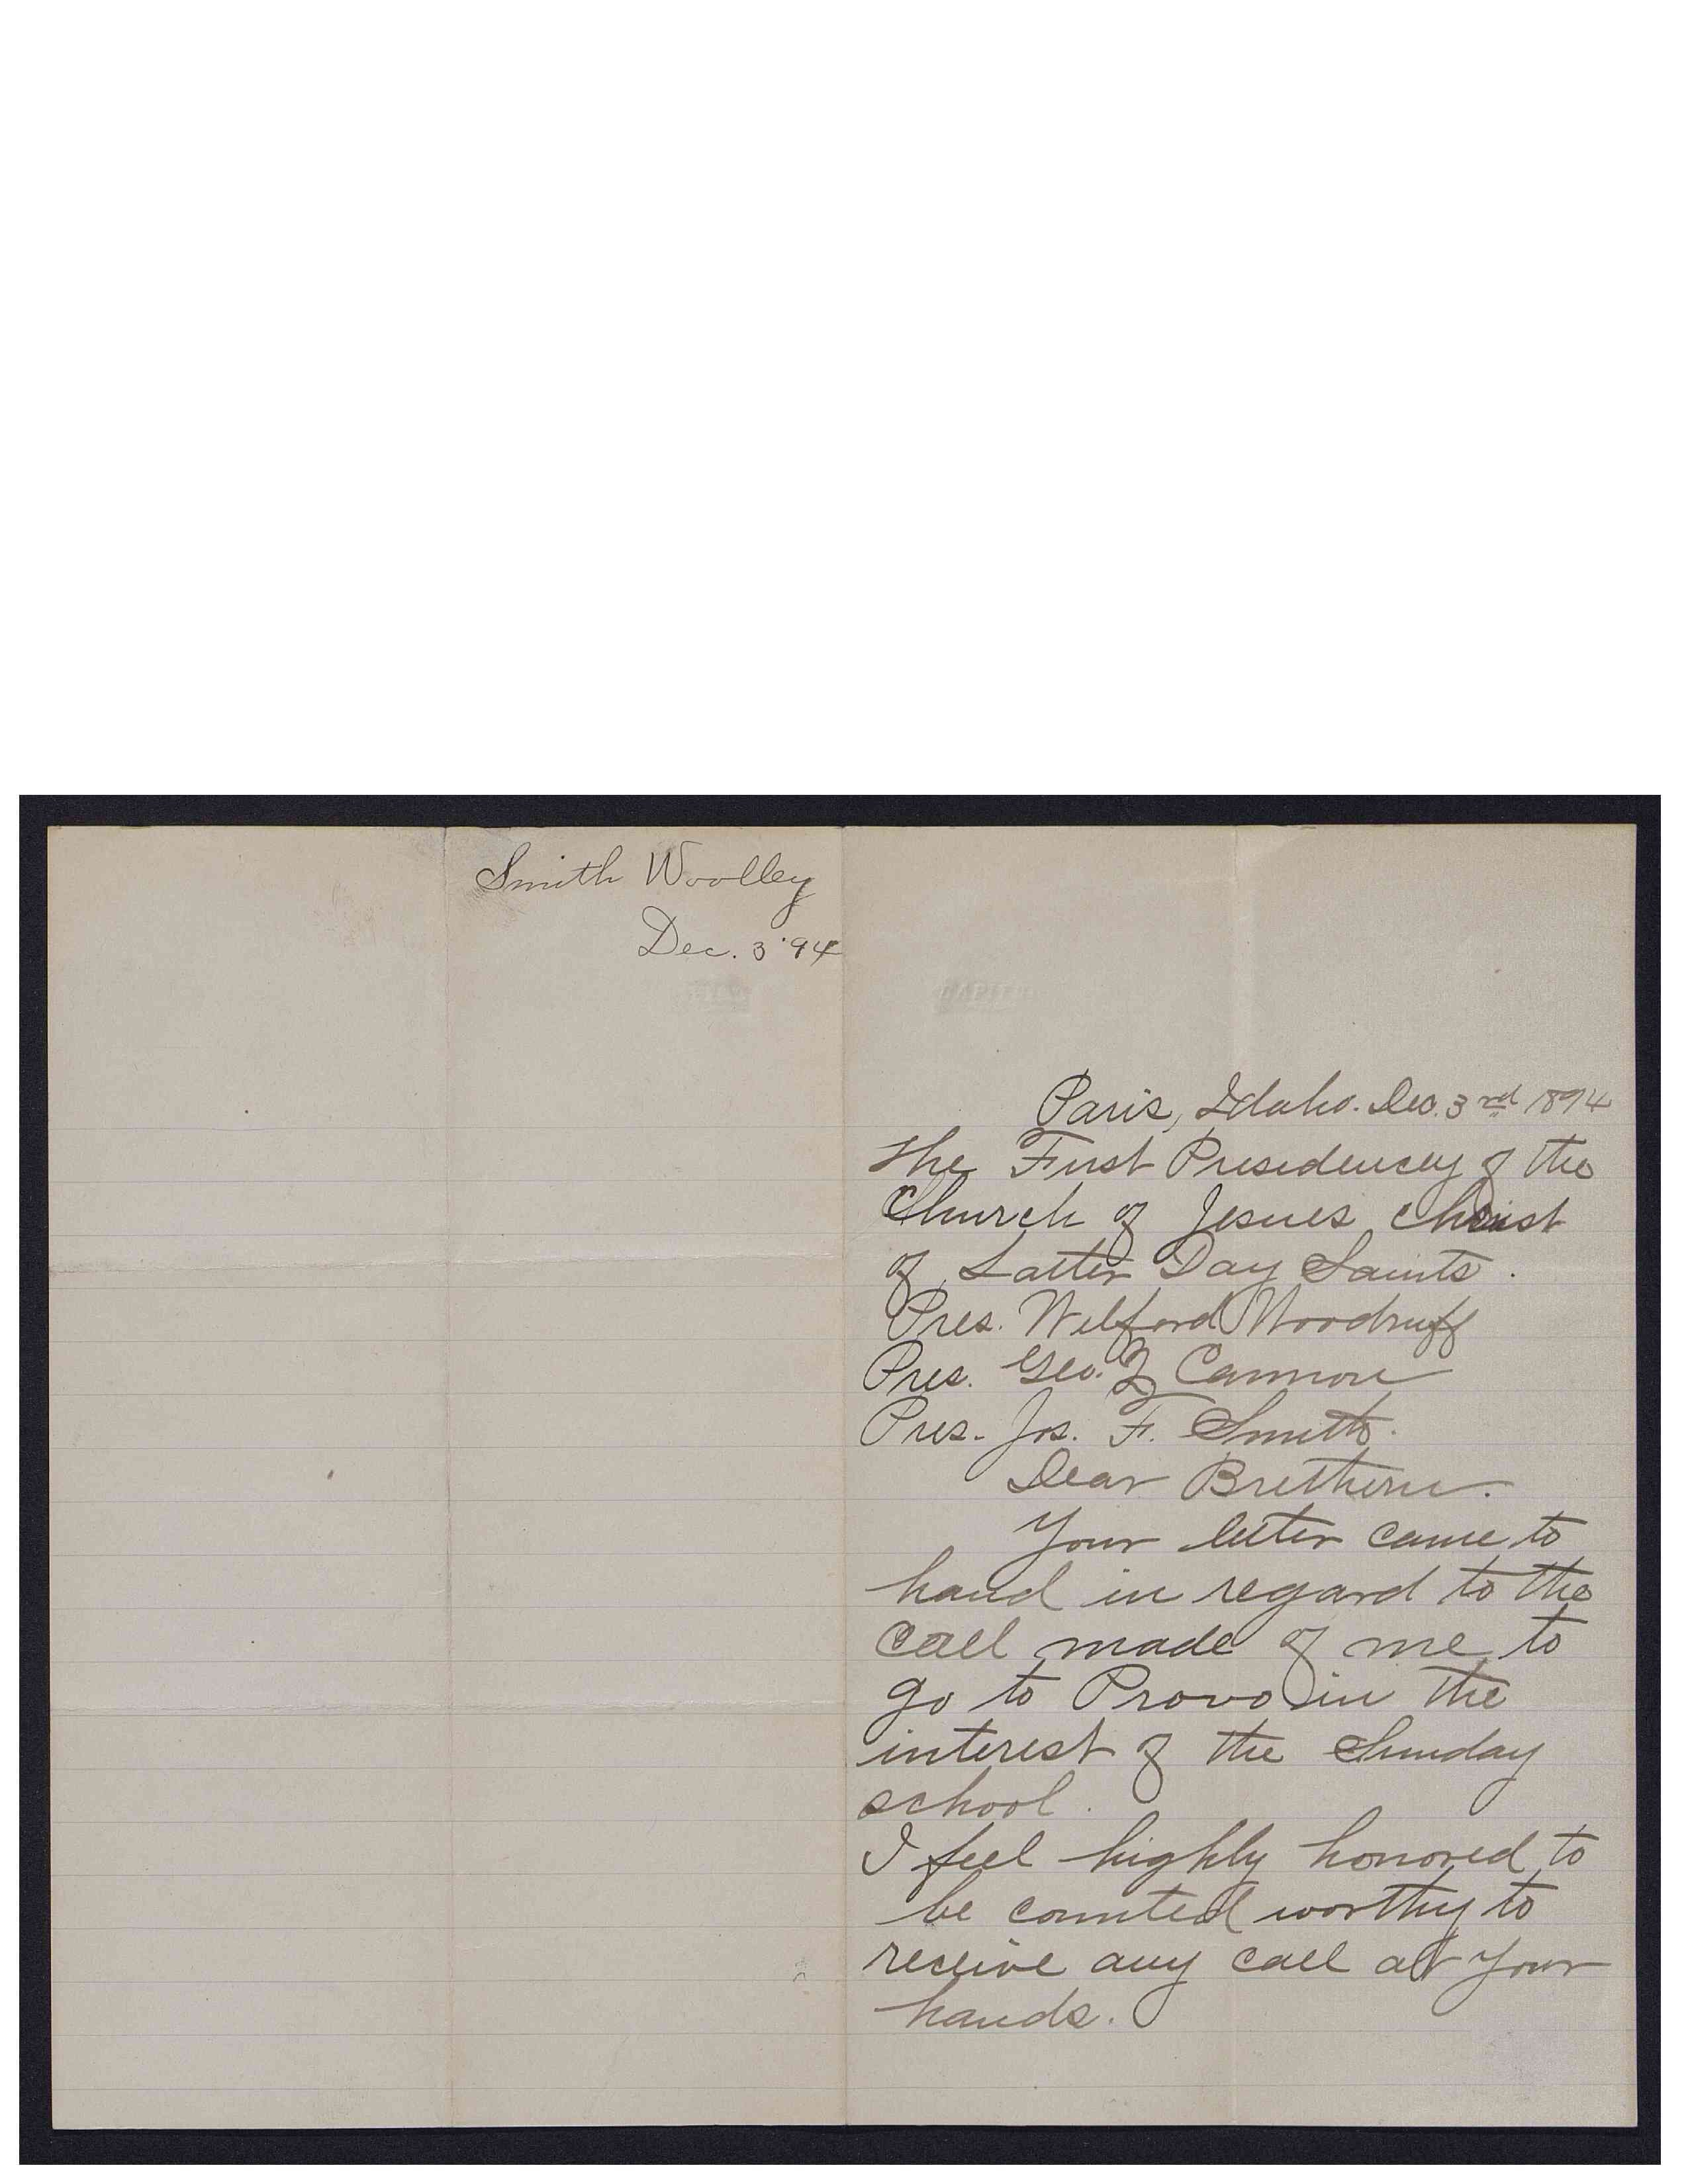 Smith Woolley
Dec. 3 '94
Paris, Idaho. Dec. 3rd 1894
The First Presidencey of the
Church of Jesues Christ
of Latter Day Saints.
Pres. Wilford Woodruff
Pres. Geo. Q Cannon
Pres. Jos. F. Smith.
Dear Brethern.
Your letter came to
hand in regard to the
call made of me to
go to Provo in the
interest of the Sunday
school.
I feel highly honored to
be counted worthy to
receive any call at your
hands.